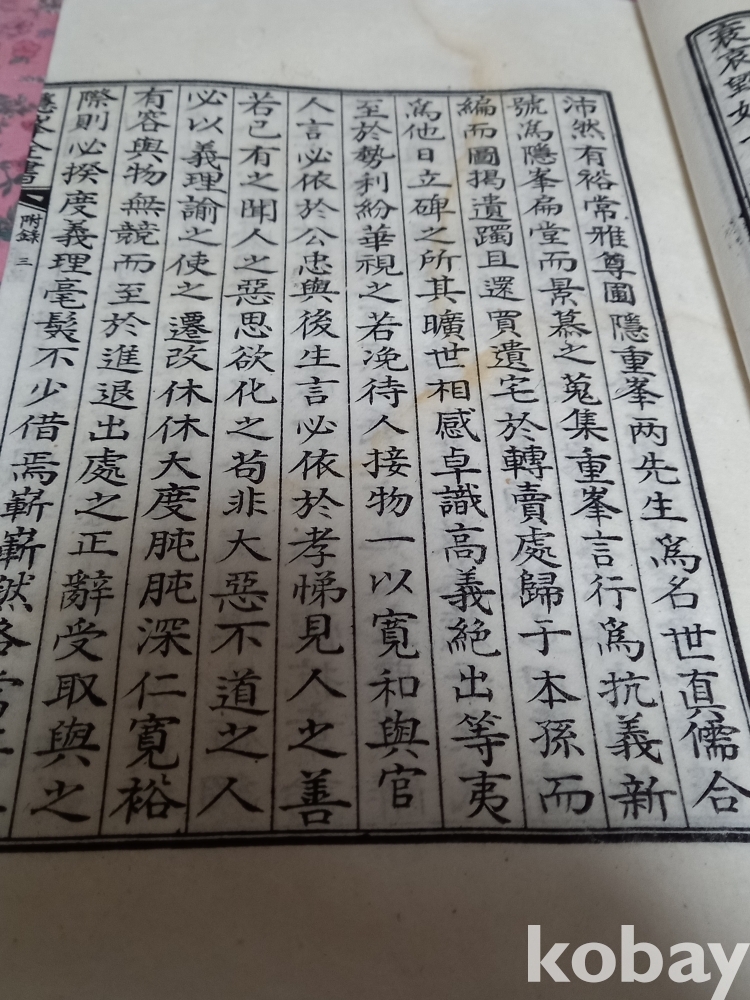 沛然有裕常雅尊圃隱重峯两先生爲名世眞儒合
號爲隱峯扁堂而景慕之蒐集重峯言行爲抗義新
編而圖揭遺躅且還買遺宅於轉賣處歸于本孫而
爲他日立碑之所其曠世相感卓識高義絶出等夷
至於勢利紛華視之若浼待人接物一以寬和與官
人言必依於公忠與後生言必依於孝悌見人之善
若己有之聞人之惡思欲化之苟非大惡不道之人
必以義理諭之使之遷改休休大度肫肫深仁寛裕
有容與物無競而至於進退出處之正辭受取與之
際則必揆度義理毫髮不少借焉嶄嶄然
附錄 三
kobay